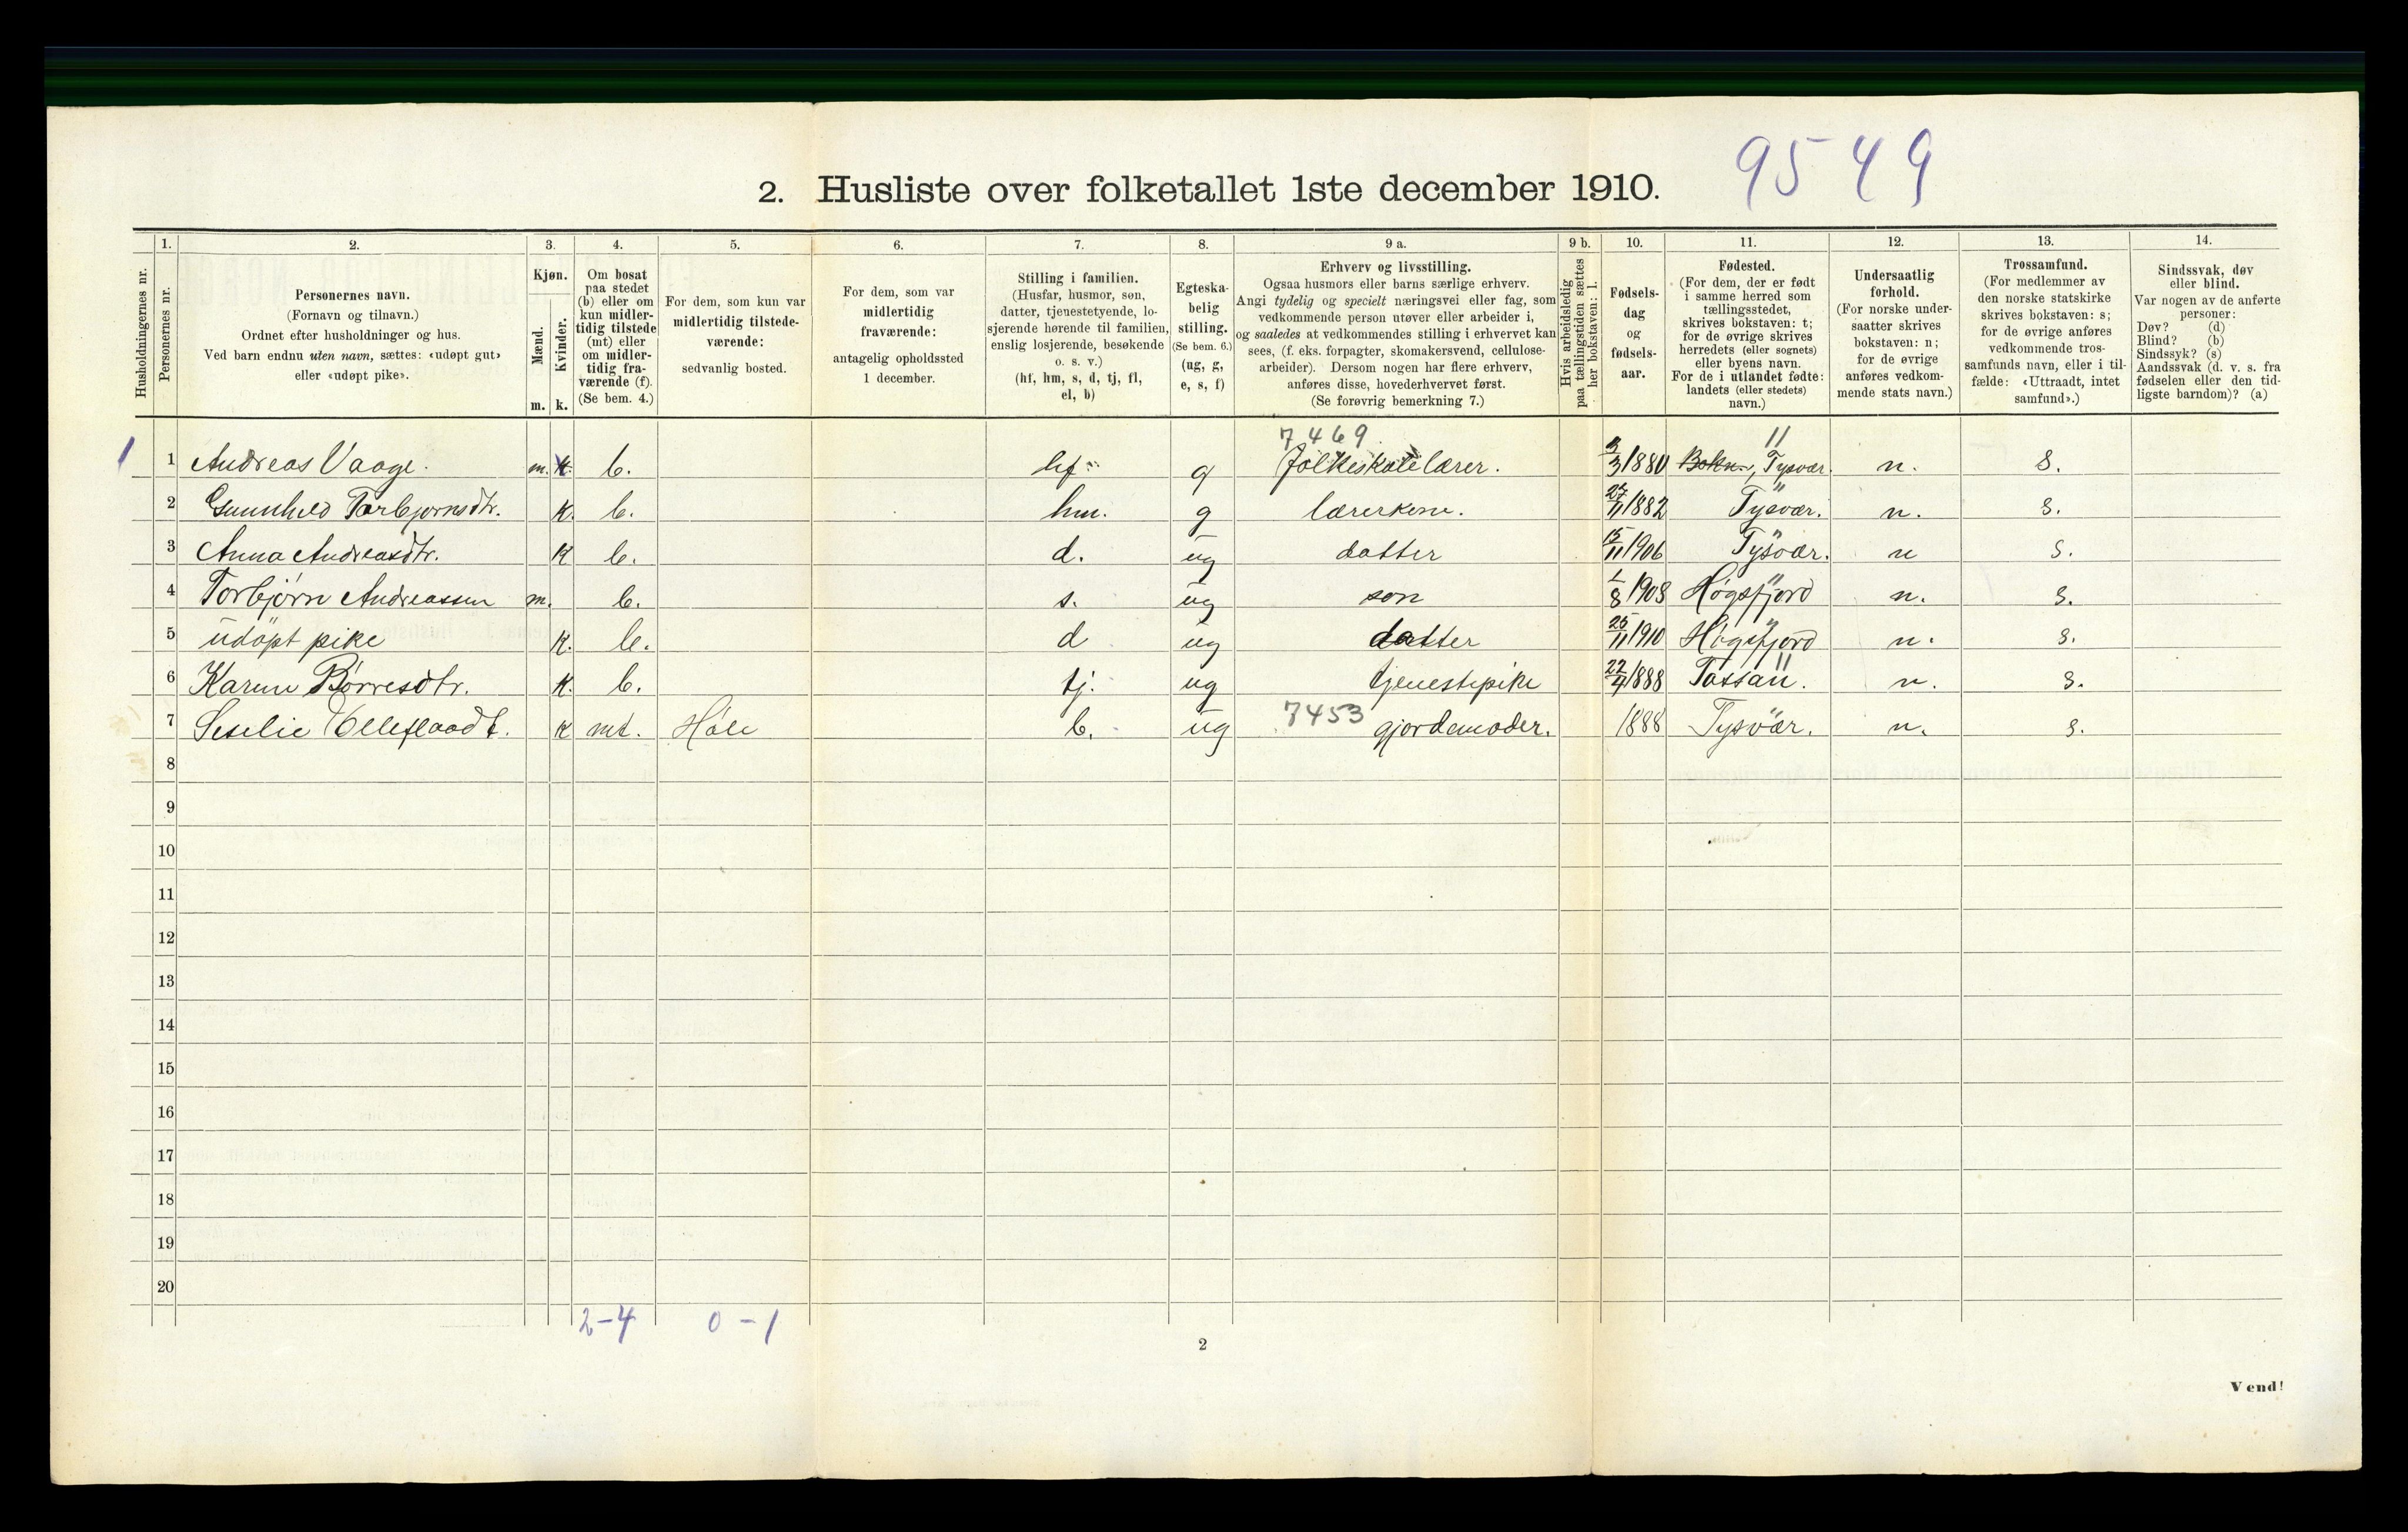 9549
2. Husliste over folketallet 1ste december 1910.
1. 2. 3. 4. 5. 6. 7. 8. 9 a. 9 b. 10. 11. 12. 13. 14.
Husholdningernes nr.
Personernes nr.
Personernes navn.
(Fornavn og tilnavn.)
Ordnet efter husholdninger og hus.
Ved barn endnu uten navn, sættes: «udøpt gut»
eller «udøpt pike».
Kjøn.
Mænd.
Kvinder.
m. k.
Om bosat
paa stedet
(b) eller om
kun midler-
tidig tilstede
(mt) eller
om midler-
tidig fra-
værende (f).
(Se bem. 4.)
For dem, som kun var
midlertidig tilstede-
værende:
sedvanlig bosted.
For dem, som var
midlertidig
fraværende:
antagelig opholdssted
1 december.
Stilling i familien.
(Husfar, husmor, søn,
datter, tjenestetyende, lo-
sjerende hørende til familien,
enslig losjerende, besøkende
o. s. v.)
(hf, hm, s, d, tj, fl,
el, b)
Egteska-
belig
stilling.
(Se bem. 6.)
(ug, g,
e, s, f)
Erhverv og livsstilling.
Ogsaa husmors eller barns særlige erhverv.
Angi tydelig og specielt næringsvei eller fag, som
vedkommende person utøver eller arbeider i,
og saaledes at vedkommendes stilling i erhvervet kan
sees, (f. eks. forpagter, skomakersvend, cellulose-
arbeider). Dersom nogen har flere erhverv,
anføres disse, hovederhvervet først.
(Se forøvrig bemerkning 7.)
Hvis arbeidsledig
paa tællingstiden sættes
her bokstaven: l.
Fødsels-
dag
og
fødsels-
aar.
Fødested.
(For dem, der er født
i samme herred som
tællingsstedet,
skrives bokstaven: t;
for de øvrige skrives
herredets (eller sognets)
eller byens navn.
For de i utlandet fødte:
landets (eller stedets)
navn.)
Undersaatlig
forhold.
(For norske under-
saatter skrives
bokstaven: n;
for de øvrige
anføres vedkom-
mende stats navn.)
Trossamfund.
(For medlemmer av
den norske statskirke
skrives bokstaven: s;
for de øvrige anføres
vedkommende tros-
samfunds navn, eller i til-
fælde: «Uttraadt, intet
samfund».)
Sindssvak, døv
eller blind.
Var nogen av de anførte
personer:
Døv? (d)
Blind? (b)
Sindssyk? (s)
Aandssvak (d. v. s. fra
fødselen eller den tid-
ligste barndom)? (a)
7469 11
1 1 Andreas Vaage. m. k. b. hf. g folkeskolelærer. 3/3 1880 Bokn, Tysvær. n. s.
2 Gunnhild Torbjørnsdtr. k. b. hm. g lærerkene. 27/11 1882 Tysvær. n. s.
3 Anna Andreasdtr. k b. d. ug datter 15/11 1906 Tysvær. n s.
4 Torbjørn Andreassen m. b. s. ug son 1/8 1908 Høgsfjord n. s.
5 udøpt pike k. b. d ug datter 25/11 1910 Høgsfjord n. s.
6 Karen Børresdtr. k. b. tj. ug tjenestepike 22/4 1888 Fossan. n. s.
7 Seselie k mt. Høle b. ug 7453 gjordemoder. 1888 Tysvær. n. s.
8
9
10
11
12
13
14
15
16
17
18
19
20
2-4 0-1
2
Vend!